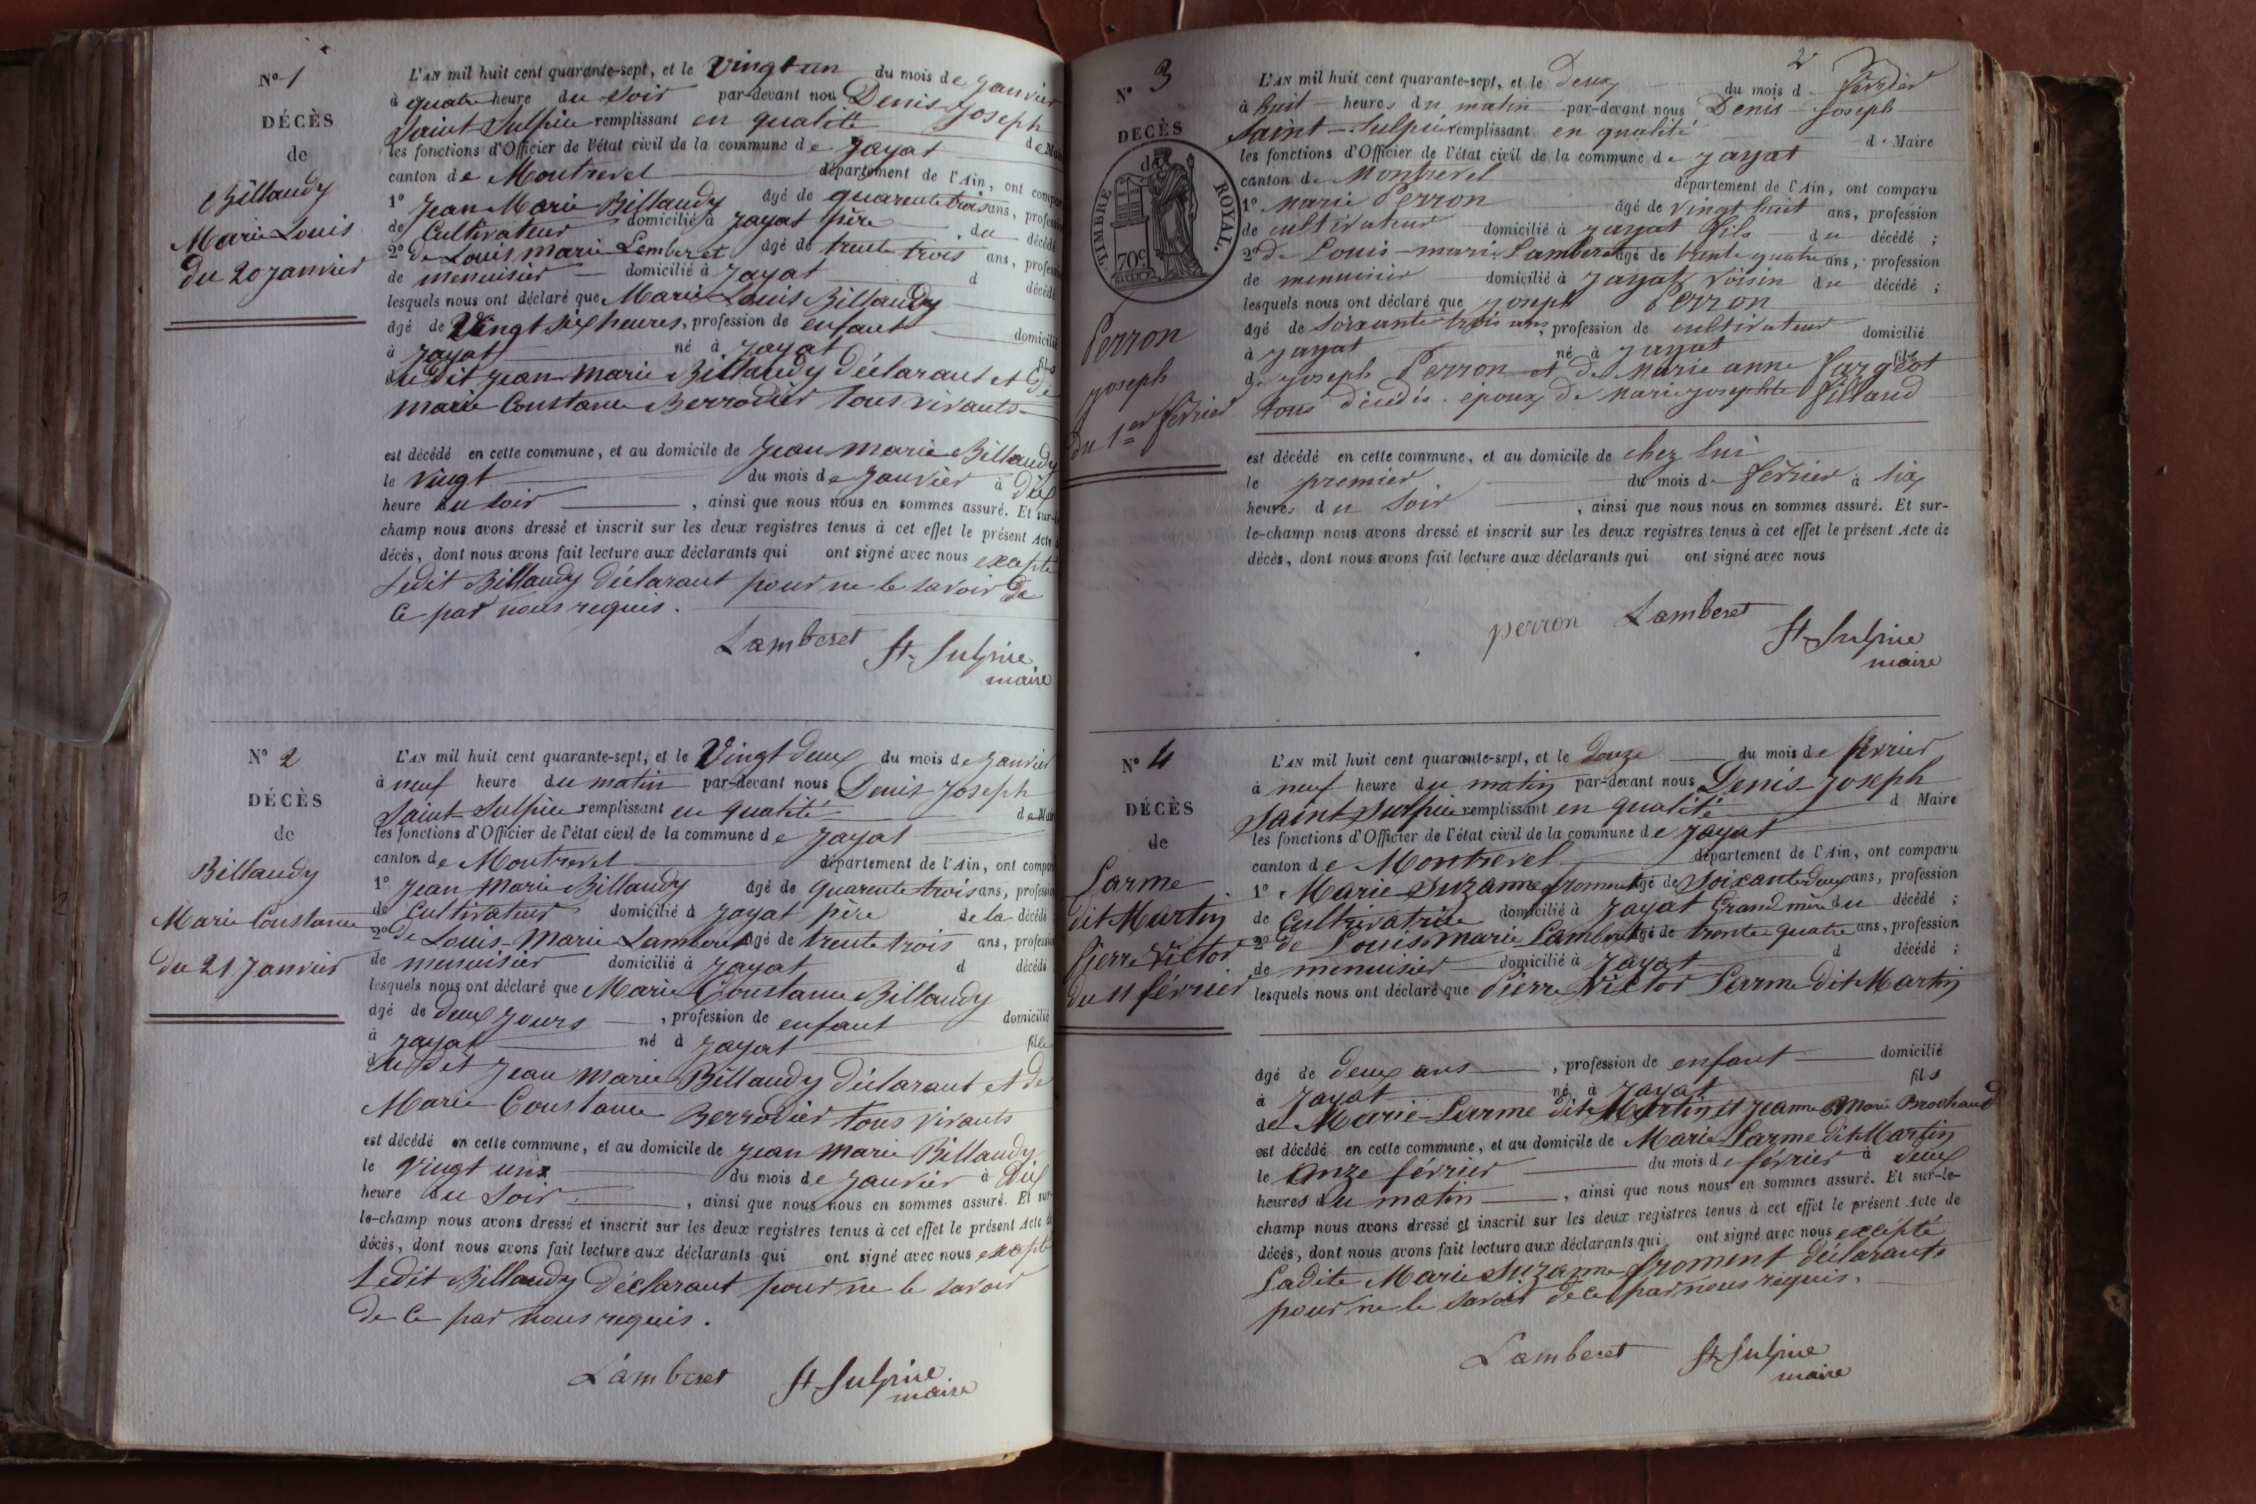 N° 1
DÉCÈS
de
Billaudy
Marie Louis
du 20 janvier
L'AN mil huit cent quarante-sept, et le vingt un du mois de janvier
à quatre heure du soir par-devant nou Denis Joseph
Saint Sulpice remplissant en qualité de Mai
les fonctions d'Officier de l'état civil de la commune de Jayat
canton de Montrevel département de l'Ain, ont compar
1° Jean Marie Billaudy âgé de quarante trois ans, profession
de Cultivateur domicilié à Jayat père du décédé
2° de Louis Marie Lamberet âgé de trente trois ans, profession
de menuisier domicilié à Jayat d décédé
lesquels nous ont déclaré que Marie Louis Billaudy
âgé de Vingt six heures, profession de enfant domicilié
à Jayat né à Jayat fils
du dit Jean Marie Billaudy déclarant et de
Marie Constance Berrodier tous vivants
est décédé en cette commune, et au domicile de Jean Marie Billaudy
le vingt du mois de Janvier à dix
heure du soir, ainsi que nous nous en sommes assuré. Et sur-le
champ nous avons dressé et inscrit sur les deux registres tenus à cet effet le présent Acte d
décès, dont nous avons fait lecture aux déclarants qui ont signé avec nous excepté
ledit Billaudy déclarant pour ne le savoir de
ce par nous requis.
Lamberet St Sulpice
maire
N° 2
DÉCÈS
de
Billaudy
Marie Constance
du 21 Janvier
L'AN mil huit cent quarante-sept, et le Vingt deux du mois de Janvier
à neuf heure du matin par-devant nous Denis Joseph
Saint Sulpice remplissant en qualité de Mai
les fonctions d'Officier de l'état civil de la commune de Jayat
canton de Montrevel département de l'Ain, ont compar
1° Jean Marie Billaudy âgé de quarante trois ans, profession
de Cultivateur domicilié à Jayat père de la décédé
2° de Louis Marie Lamberet âgé de trente trois ans, profession
de menuisier domicilié à Jayat d décédé
lesquels nous ont déclaré que Marie Constance Billaudy
âgé de deux jours, profession de enfant domicilié
à Jayat né à Jayat fille
du dit Jean Marie Billaudy déclarant et de
Marie Constance Berrodier tous vivants
est décédé en cette commune, et au domicile de Jean Marie Billaudy
le vingt un du mois de Janvier à dix
heure du soir, ainsi que nous nous en sommes assuré. Et sur
le-champ nous avons dressé et inscrit sur les deux registres tenus à cet effet le présent Acte de
décès, dont nous avons fait lecture aux déclarants qui ont signé avec nous excepté
ledit Billaudy déclarant pour ne le savoir
de ce par nous requis.
Lamberet St Sulpice
maire
2
N° 3
DECÈS
de
TIMBRE ROYAL.
70c
Perron
joseph
du 1er février
L'AN mil huit cent quarante-sept, et le deux du mois d. février
à huit heures du matin par-devant nous Denis Joseph
Saint-Sulpice remplissant en qualité d. Maire
les fonctions d'Officier de l'état civil de la commune de Jayat
canton d. Montrevel département de l'Ain, ont comparu
1° Marie Perron âgé de vingt huit ans, profession
de cultivateur domicilié à Jayat fils du décédé ;
2° de Louis marie Lamberet âgé de trente quatre ans, profession
de menuisier domicilié à Jayat voisin du décédé ;
lesquels nous ont déclaré que joseph Perron
âgé de soixante trois ans, profession de cultivateur domicilié
à Jayat né à Jayat fils
de joseph Perron et de Marie anne
tous décédés. époux de marie josephte
est décédé en cette commune, et au domicile de chez lui
le premier du mois d. février à six
heures du soir, ainsi que nous nous en sommes assuré. Et sur-
le-champ nous avons dressé et inscrit sur les deux registres tenus à cet effet le présent Acte de
décès, dont nous avons fait lecture aux déclarants qui ont signé avec nous
perron Lamberet
St Sulpice
maire
N° 4
DÉCÈS
de
Larme
dit Martin
Pierre Victor
du 11 février
L'AN mil huit cent quarante-sept, et le douze du mois de février
à neuf heure du matin par-devant nous Denis Joseph
Saint Sulpice remplissant en qualité d Maire
les fonctions d'Officier de l'état civil de la commune de Jayat
canton de Montrevel département de l'Ain, ont comparu
1° Marie Suzanne froment âgé de soixante deux ans, profession
de Cultivatrice domicilié à Jayat Grand mère du décédé ;
2° de Louis marie Lamberet âgé de trente quatre ans, profession
de menuisier domicilié à Jayat d décédé ;
lesquels nous ont déclaré que Pierre Victor Larme dit Martin
âgé de deux ans, profession de enfant domicilié
à Jayat né à Jayat fils
de Marie Larme dit Martin et Jeanne Marie Brochand
est décédé en cette commune, et au domicile de Marie Larme dit Martin
le onze février du mois de février à deux
heures du matin, ainsi que nous nous en sommes assuré. Et sur-le-
champ nous avons dressé et inscrit sur les deux registres tenus à cet effet le présent Acte de
décès, dont nous avons fait lecture aux déclarants qui ont signé avec nous excepté
Ladite Marie Suzanne froment déclarante
pour ne le savoir de ce par nous requis.
Lamberet St Sulpice
maire